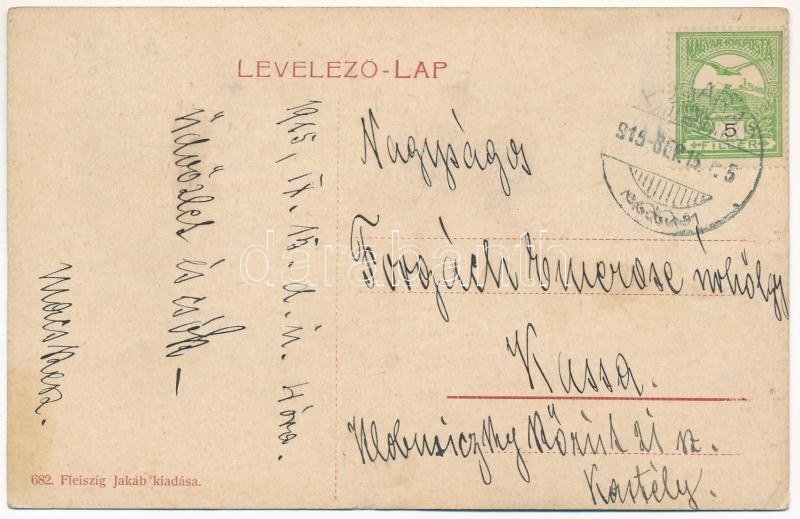 LEVELEZŐ-LAP
MAGYAR KIR. POSTA
5
FILLÉR
915 SEP. 15.
1915. IX. 15. d. u. 4 óra.
Üdvözlet és csók –
Nagyságos
Forgách Emerose úrhölgy
Kassa.
Klobusiczky Körút 21 sz.
Kastély.
682. Fleiszig Jakáb kiadása.
darabanth